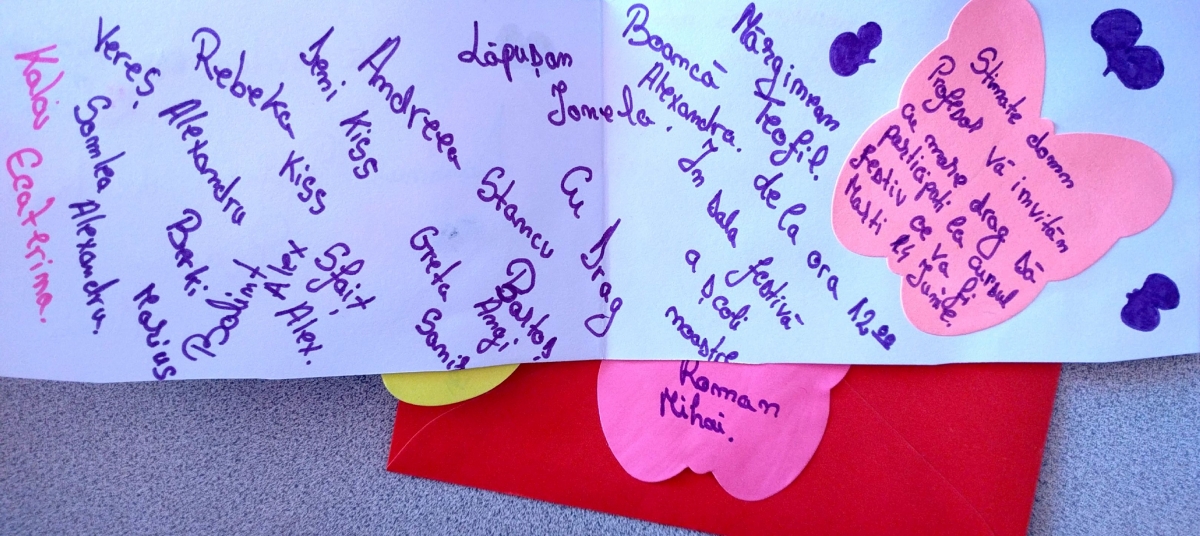 Stimate domn
Profesor vă invităm
cu mare drag să
participați la cursul
festiv ce va fi
Marți 14 Iunie.
de la ora 12.00
În sala festivă
a școli
noastre
Cu Drag
Mărgimean
Teofil.
Boancă
Alexandra.
Lăpușan
Ionela.
Andreea
Stancu
Ieni Kiss
Rebeka Kiss
Vereș Alexandru
Somlea Alexandru.
Kalai Ecaterima.
Berki
Marius
Sfait
Alex.
Greta
Sanis
Bartoș
Angi
Roman
Mihai.